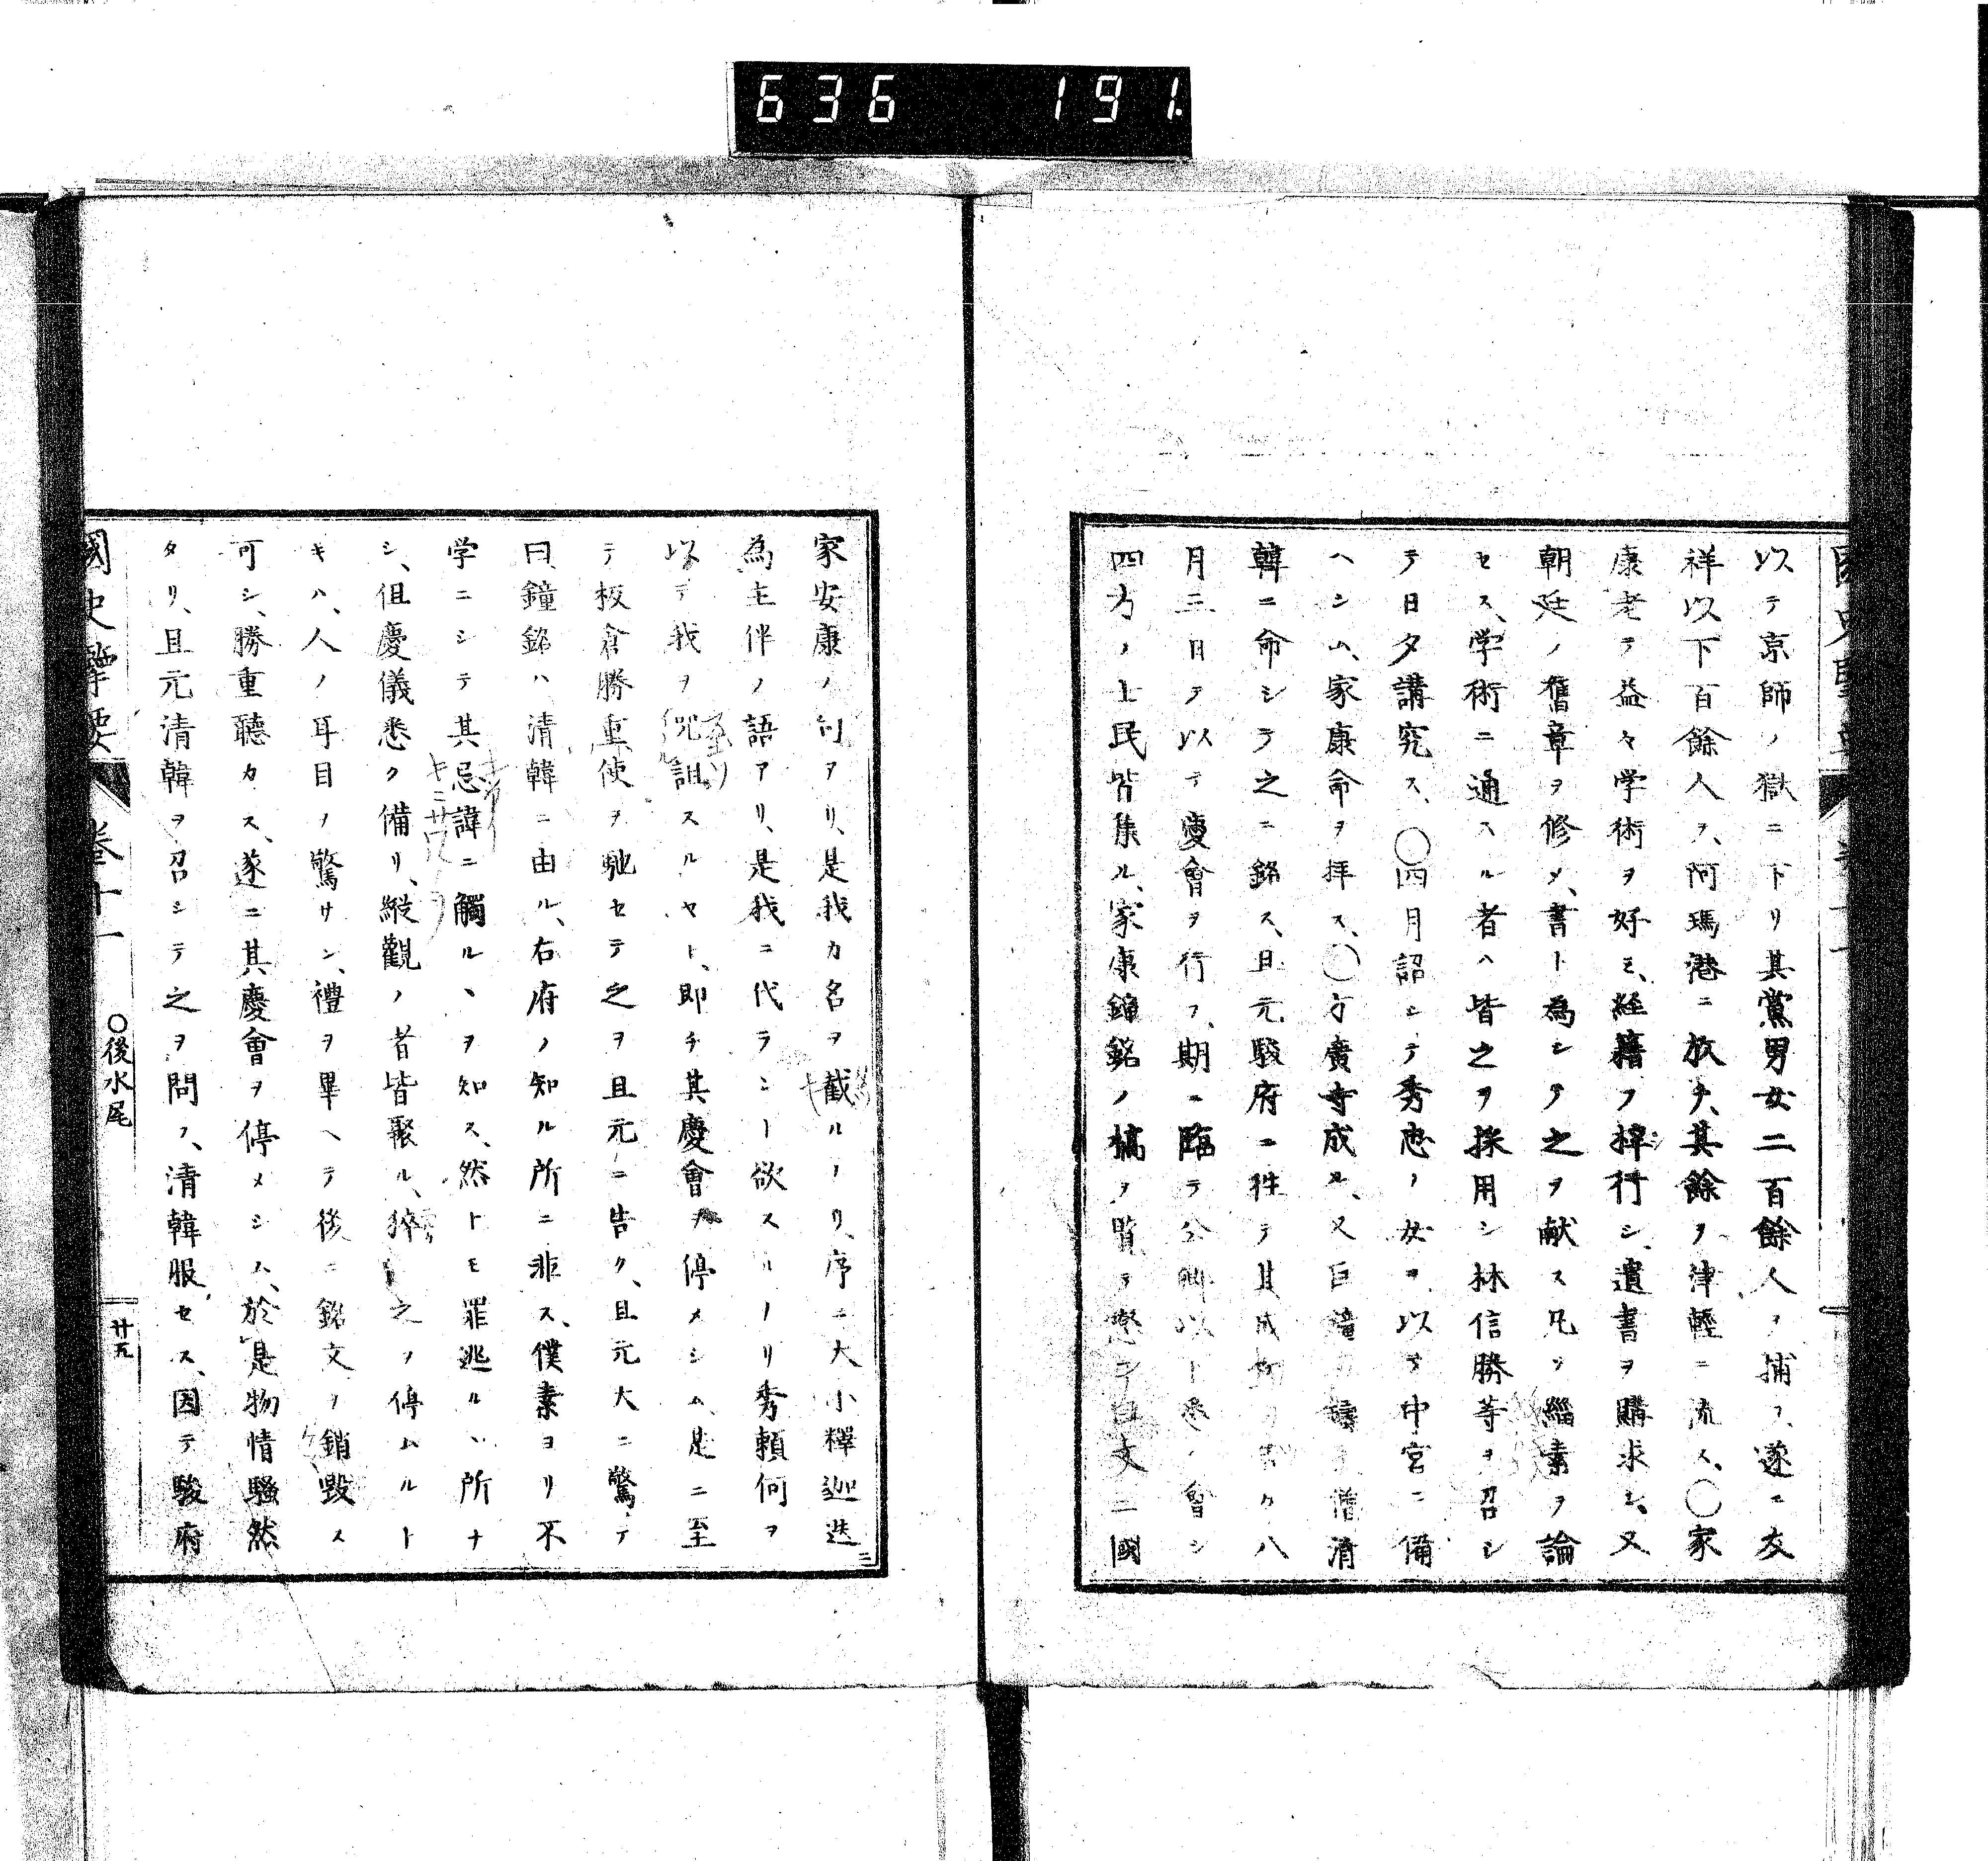 636 191
以テ京師ノ獄ニ下リ其黨男女二百餘人ヲ捕フ、遂ニ友
祥以下百餘人ヲ、阿瑪港ニ放チ、其餘ヲ津輕ニ流ス、〇家
康老テ益々学術ヲ好ミ、経籍ヲ梓行シ、遺書ヲ購求シ、又
朝廷ノ舊章ヲ修メ、書ト為シテ之ヲ献ス凡ソ緇素ヲ論
セス、学術ニ通スル者ハ皆之ヲ採用シ林信勝等ヲ召シ
テ日夕講究ス、〇四月詔シテ秀忠ノ女ヲ以テ中宮ニ備
ヘシム、家康命ヲ拝ス、〇方廣寺成ル、又巨鐘ヲ鑄テ僧清
韓ニ命シテ之ニ銘ス、且元駿府ニ徃テ其成ヲ告ク八
月三日ヲ以テ慶會ヲ行フ、期ニ臨テ公卿以下悉ク會シ
四方ノ士民皆集ル、家康鐘銘ノ稿ヲ覧テ怒テ曰文ニ國
家安康ノ句アリ、是我カ名ヲ截ルナリ、序ニ大小釋迦迭
為主伴ノ語アリ、是我ニ代ラント欲スルナリ秀頼何ヲ
以テ我ヲ咒詛スルヤト、即チ其慶會ヲ停メシム、是ニ至
テ板倉勝重使ヲ馳セテ之ヲ且元ニ告ク、且元大ニ驚テ
曰、鐘銘ハ清韓ニ由ル、右府ノ知ル所ニ非ス、僕素ヨリ不
学ニシテ其忌諱ニ觸ルヽヲ知ス、然トモ罪逃ルヽ所ナ
シ、但慶儀悉ク備リ、縦觀ノ者皆聚ル、猝ニ之ヲ停ムルト
キハ、人ノ耳目ヲ驚サン、禮ヲ畢ヘテ後ニ銘文ヲ銷毀ス
可シ、勝重聽カス、遂ニ其慶會ヲ停メシム、於是物情騒然
タリ、且元清韓ヲ召シテ之ヲ問フ、清韓服セス、因テ駿府
國史擥要 卷十一 〇後水尾 廿五